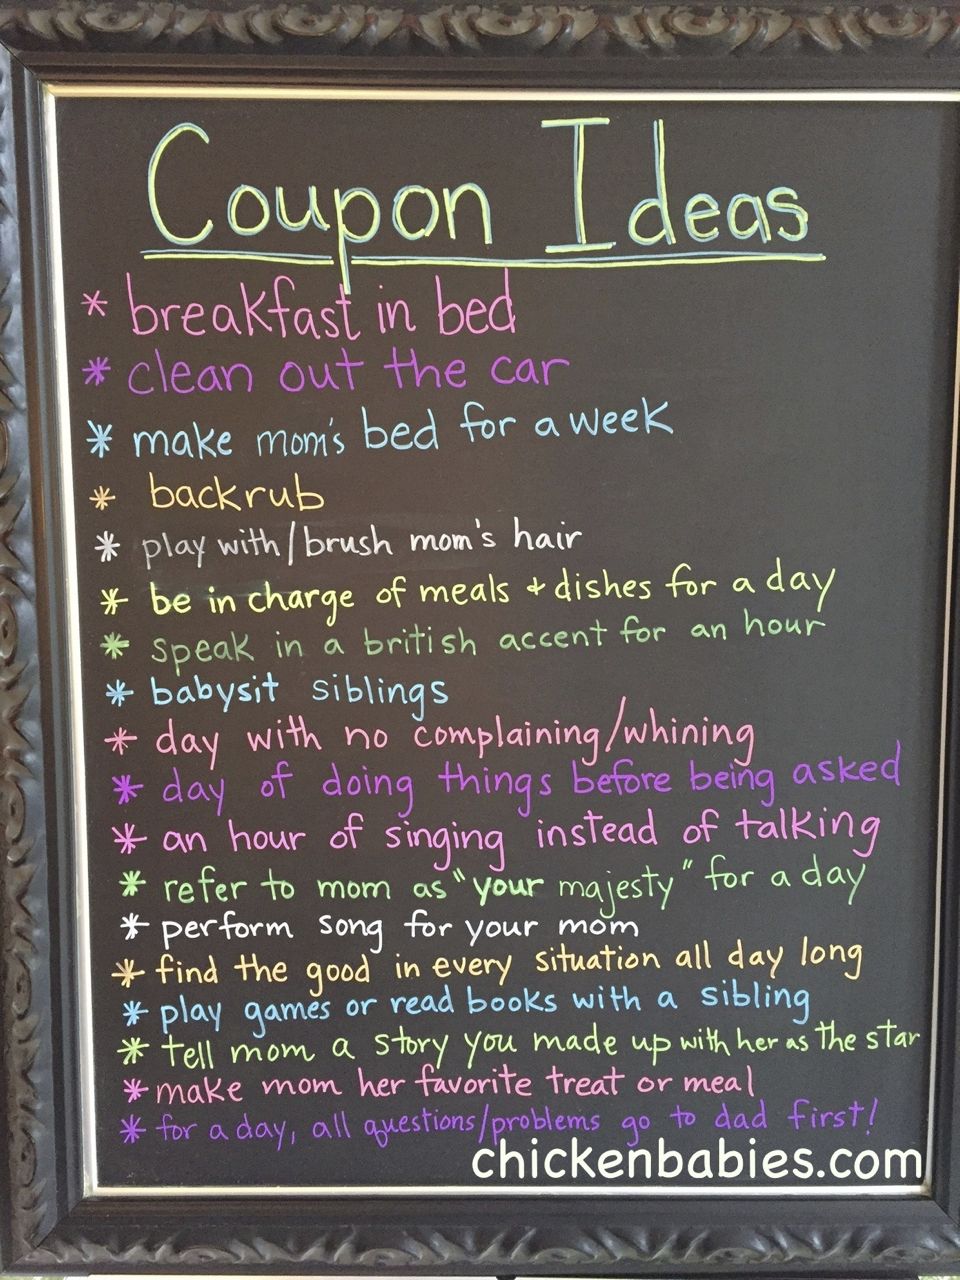 Coupon Ideas
* breakfast in bed
* clean out the car
* make mom's bed for a week
* backrub
* play with/brush mom's hair
* be in charge of meals + dishes for a day
* speak in a british accent for an hour
* babysit siblings
* day with no complaining/whining
* day of doing things before being asked
* an hour of singing instead of talking
* refer to mom as "your majesty" for a day
* perform song for your mom
* find the good in every situation all day long
* play games or read books with a sibling
* tell mom a story you made up with her as the star
* make mom her favorite treat or meal
* for a day, all questions/problems go to dad first!
chickenbabies.com